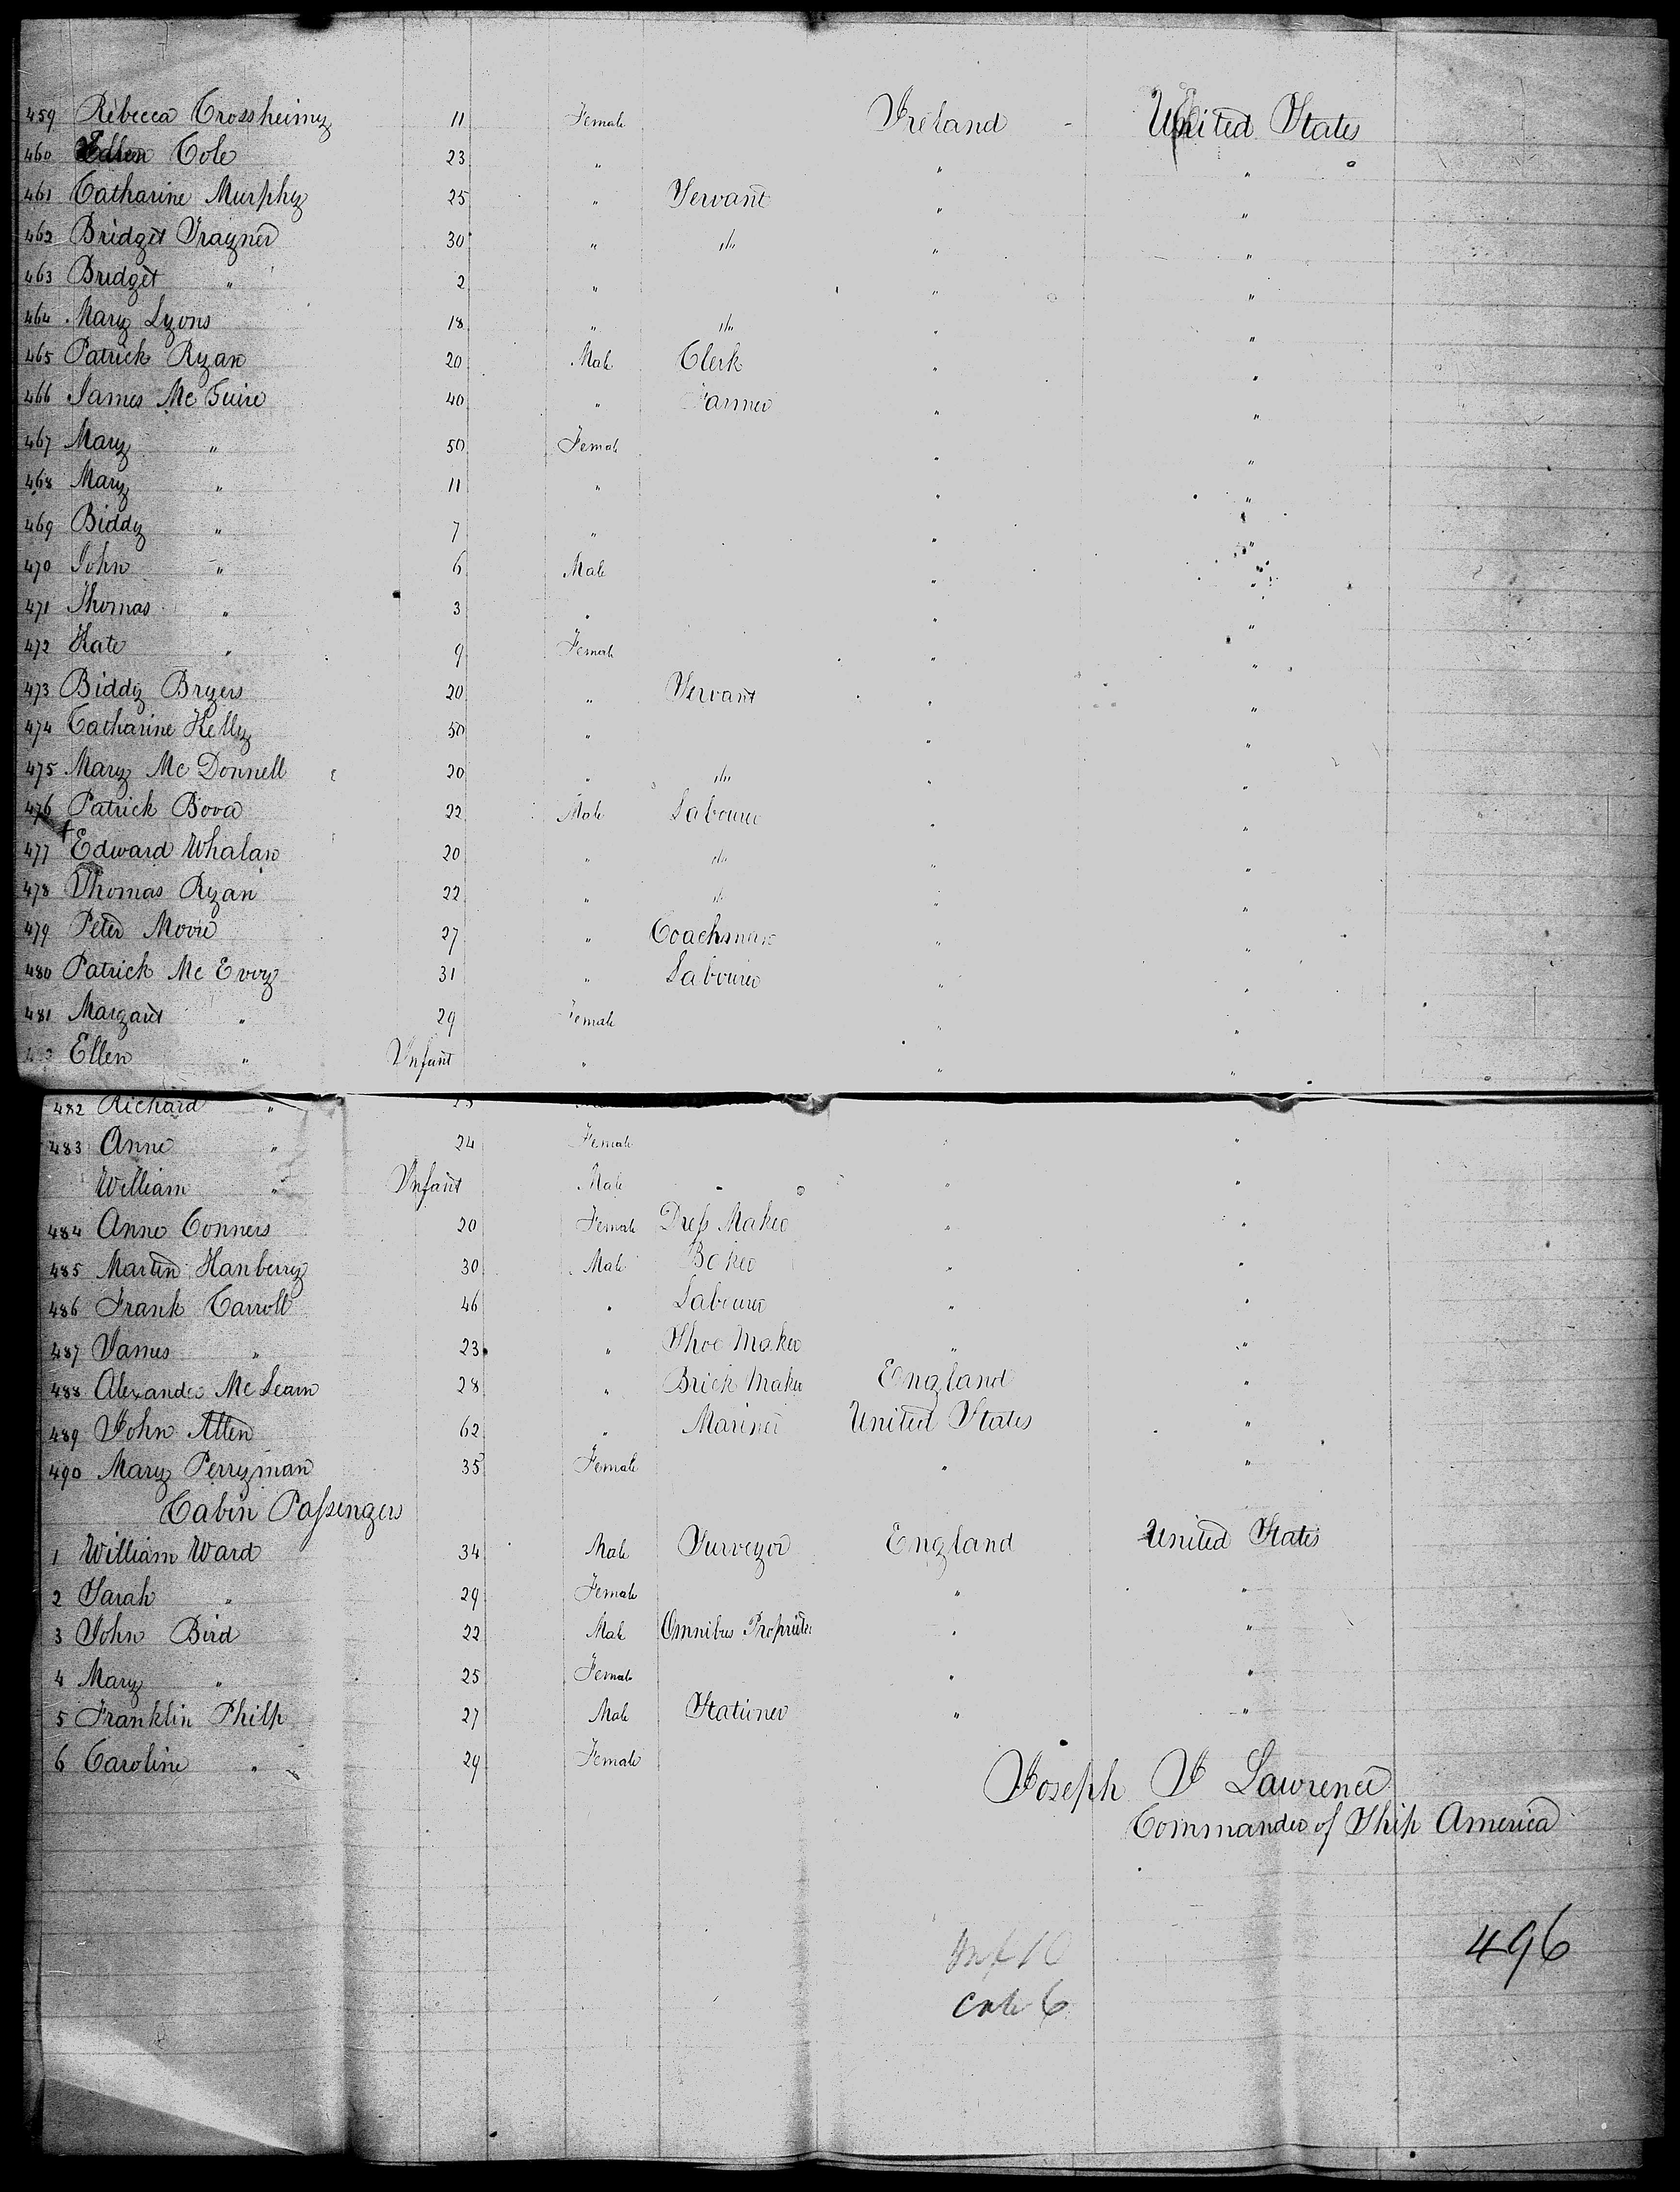 459 Rebecca Crossheimy 11 Female Ireland - United States
460 Ellen Cole 23 " " "
461 Catharine Murphy 25 " Servant " "
462 Bridget Traynor 30 " do " "
463 Bridget " 2 " " "
464 Mary Lyons 18 " do " "
465 Patrick Ryan 20 Male Clerk " "
466 James Mc Guire 40 " Farmer " "
467 Mary " 50 Female " "
468 Mary " 11 " " "
469 Biddy " 7 " " "
470 John " 6 Male " "
471 Thomas " 3 " " "
472 Kate " 9 Female " "
473 Biddy Bryers 20 " Servant " "
474 Catharine Kelly 50 " " "
475 Mary Mc Donnell 20 " do " "
476 Patrick Bova 22 Male Labourer " "
477 Edward Whalan 20 " do " "
478 Thomas Ryan 22 " do " "
479 Peter Moore 27 " Coachman " "
480 Patrick Mc Evoy 31 " Labourer " "
481 Margaret " 29 Female " "
Ellen " Infant " " "
482 Richard " 25
483 Anne " 24 Female " "
William " Infant Male " "
484 Anne Conners 20 Female Dress Maker " "
485 Martin Hanberry 30 Male Baker " "
486 Frank Carroll 46 " Labourer " "
487 James " 23 " Shoe Maker " "
488 Alexander Mc Learn 28 " Brick Maker England "
489 John Allen 62 " Mariner United States "
490 Mary Perryman 35 Female " "
Cabin Passengers
1 William Ward 34 Male Surveyor England United States
2 Sarah " 29 Female " "
3 John Bird 22 Male Omnibus Proprietor " "
4 Mary " 25 Female " "
5 Franklin Philp 27 Male Stationer " "
6 Caroline " 29 Female
Joseph J Lawrence
Commander of Ship America
496
Inf 10
Cab 6